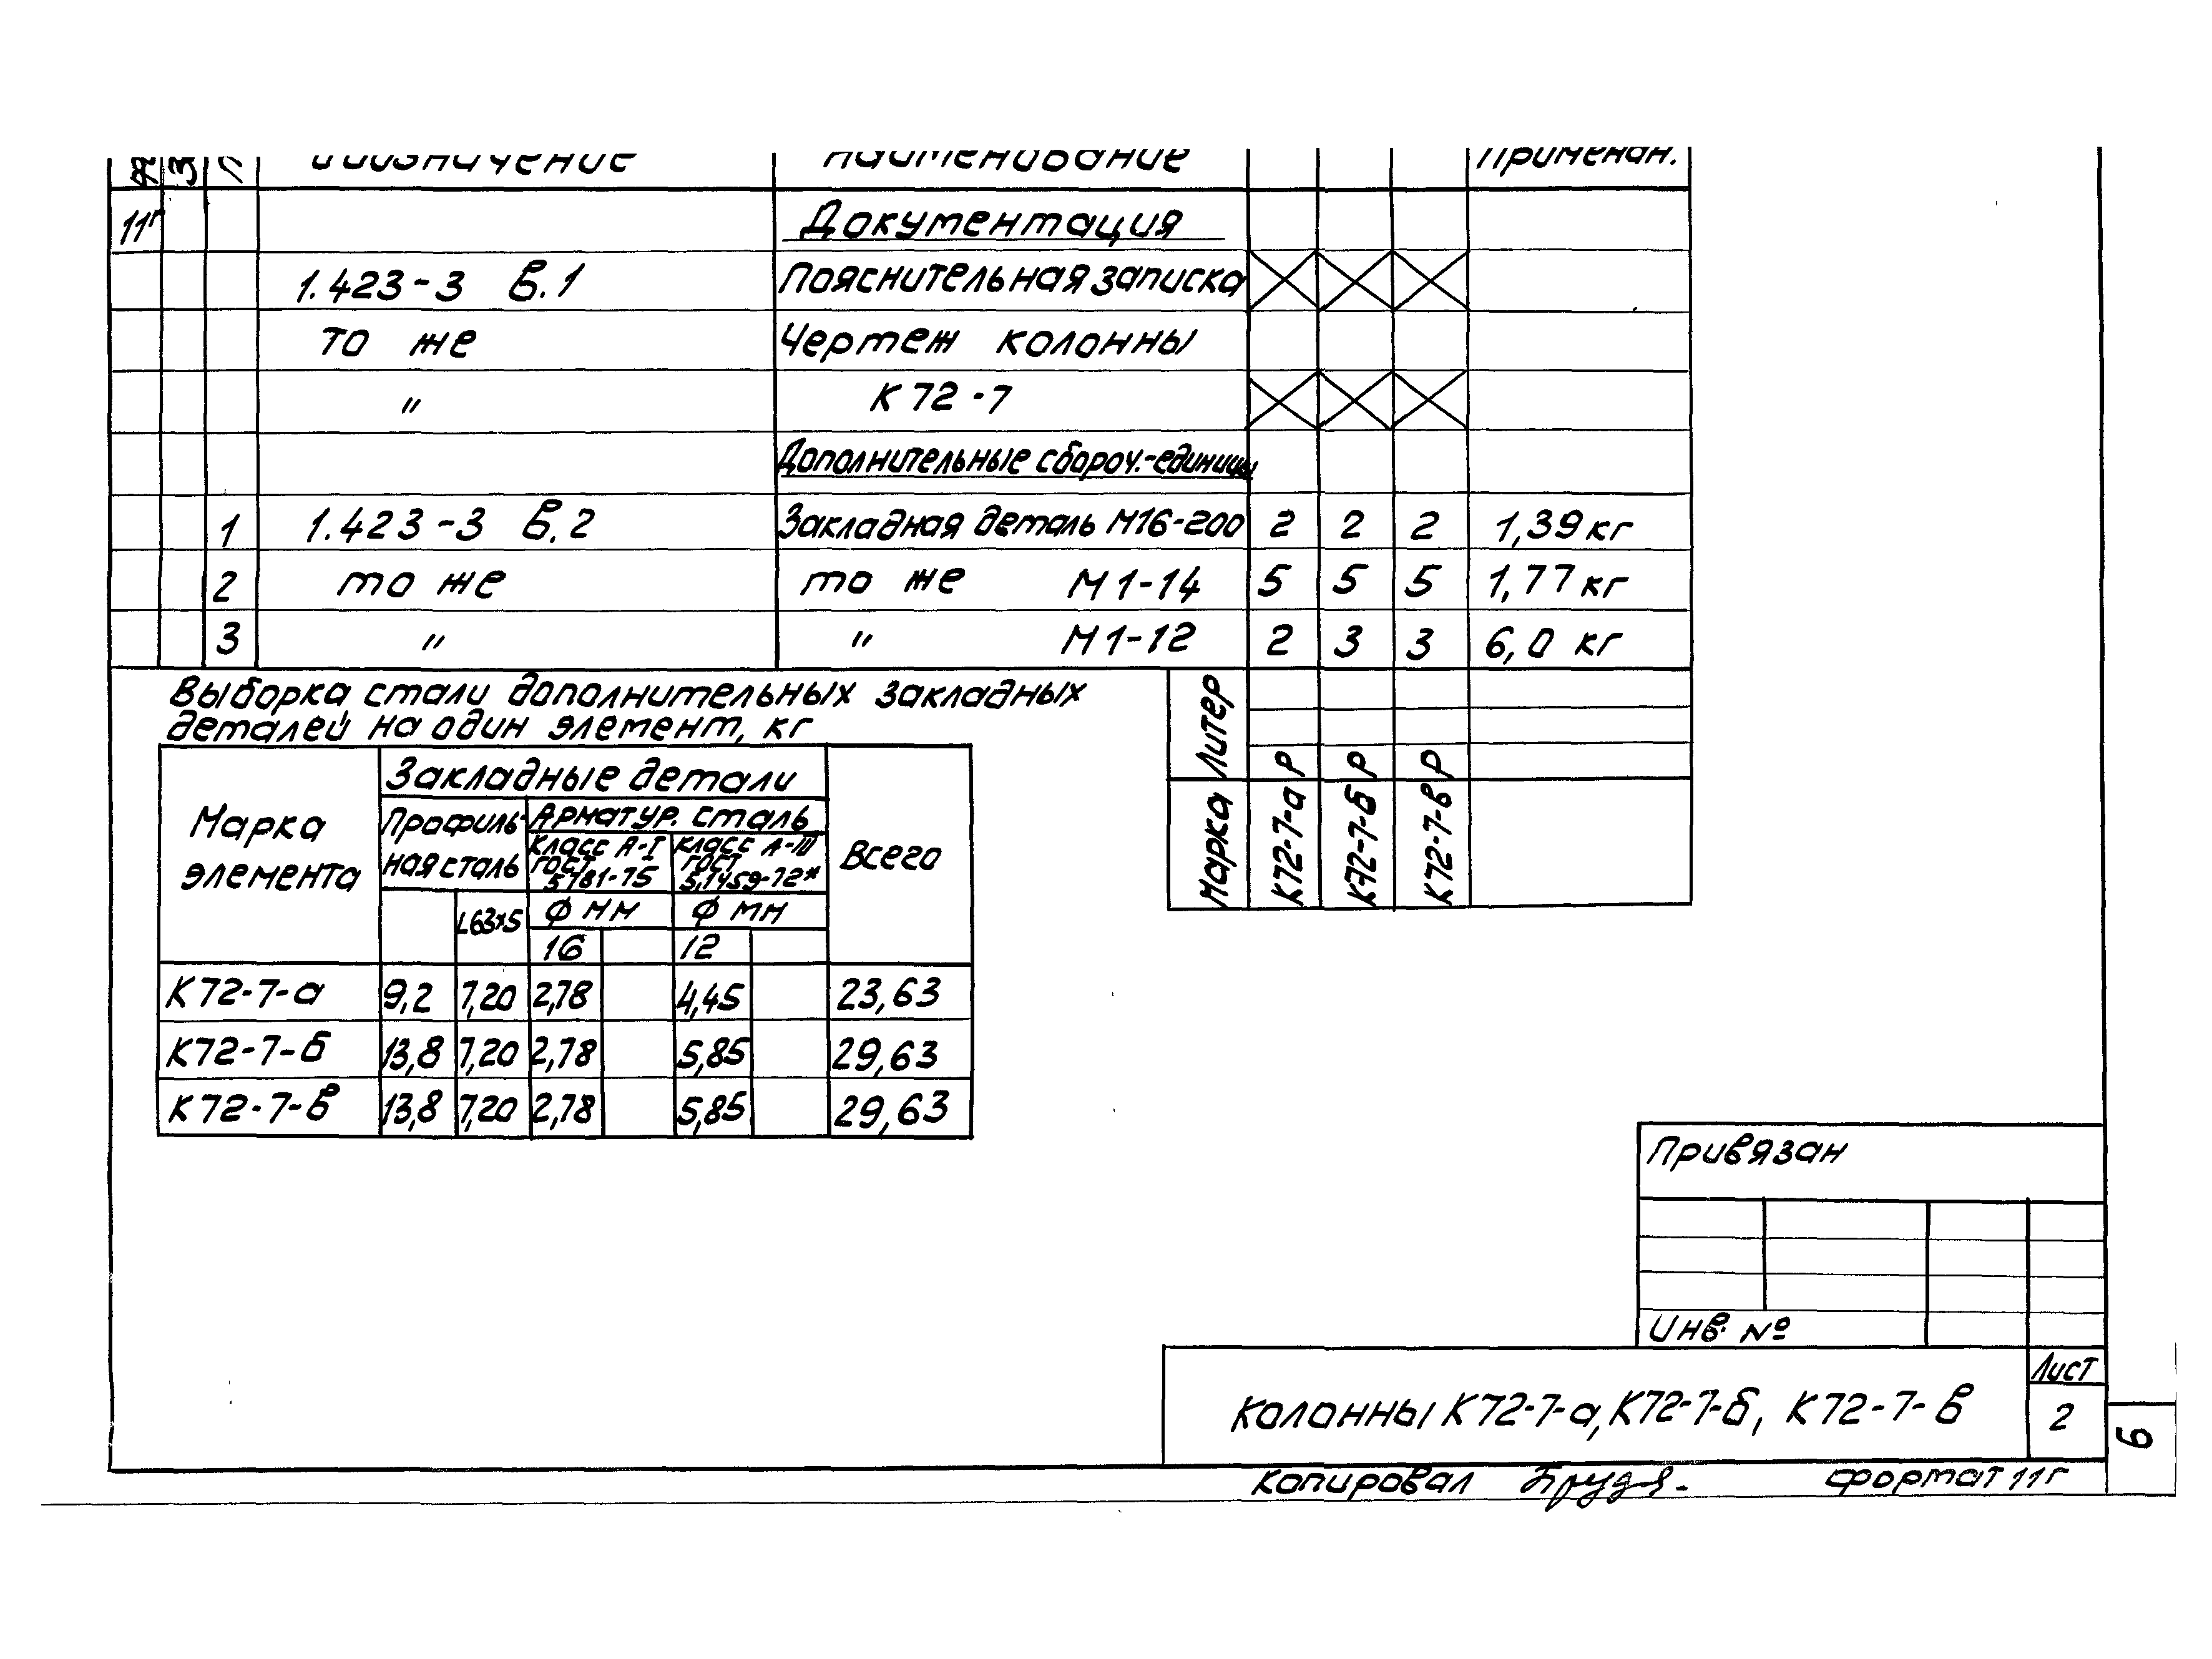 Обозначение Наименование Примечан.
11г Документация
1.423-3 в.1 Пояснительная записка
то же Чертеж колонны
" К 72-7
Дополнительные сбороч.-единицы
1 1.423-3 в.2 Закладная деталь М16-200 2 2 2 1,39 кг
2 то же то же М1-14 5 5 5 1,77 кг
3 " " М1-12 2 3 3 6,0 кг
Литер Р Р Р
Марка К72-7-а К72-7-б К72-7-в
Выборка стали дополнительных закладных
деталей на один элемент, кг
Марка элемента
Закладные детали
Всего
Профиль-
ная сталь
Арматур. сталь
Класс А-I
ГОСТ
5781-75
Класс А-III
ГОСТ
5.1459-72*
L63х5 Ф мм Ф мм
16 12
К72-7-а 9,2 7,20 2,78 4,45 23,63
К72-7-б 13,8 7,20 2,78 5,85 29,63
К72-7-в 13,8 7,20 2,78 5,85 29,63
Привязан
Инв. №
Колонны К72-7-а, К72-7-б, К72-7-в
Лист
2
6
Копировал Формат 11г